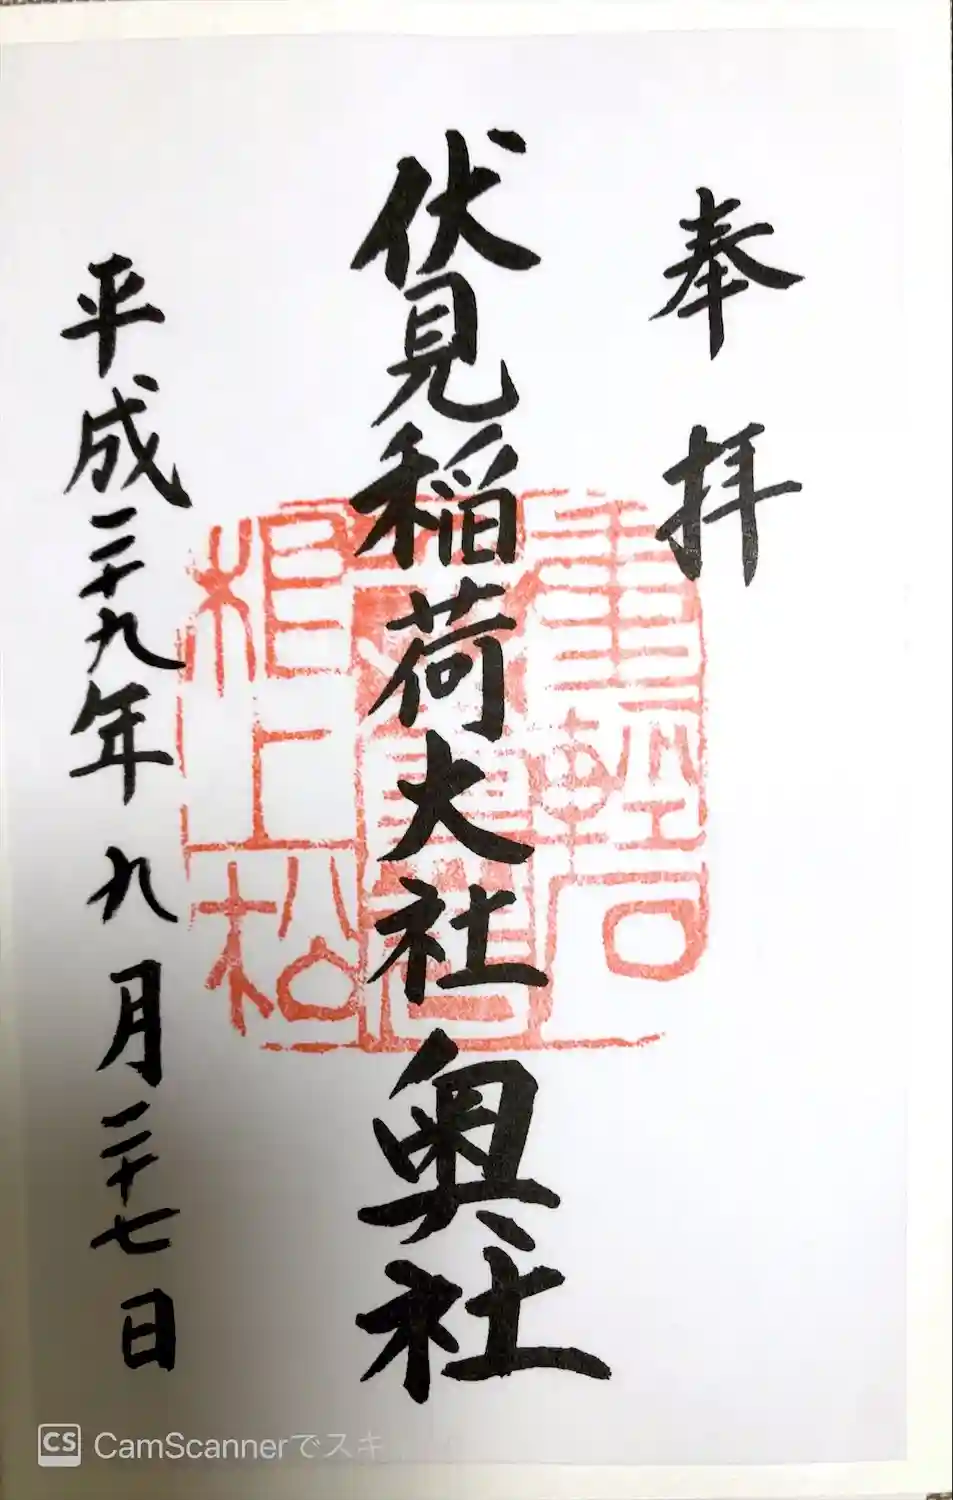 奉拝
伏見稲荷大社奥社
平成二十九年九月二十七日
CS CamScannerでスキ